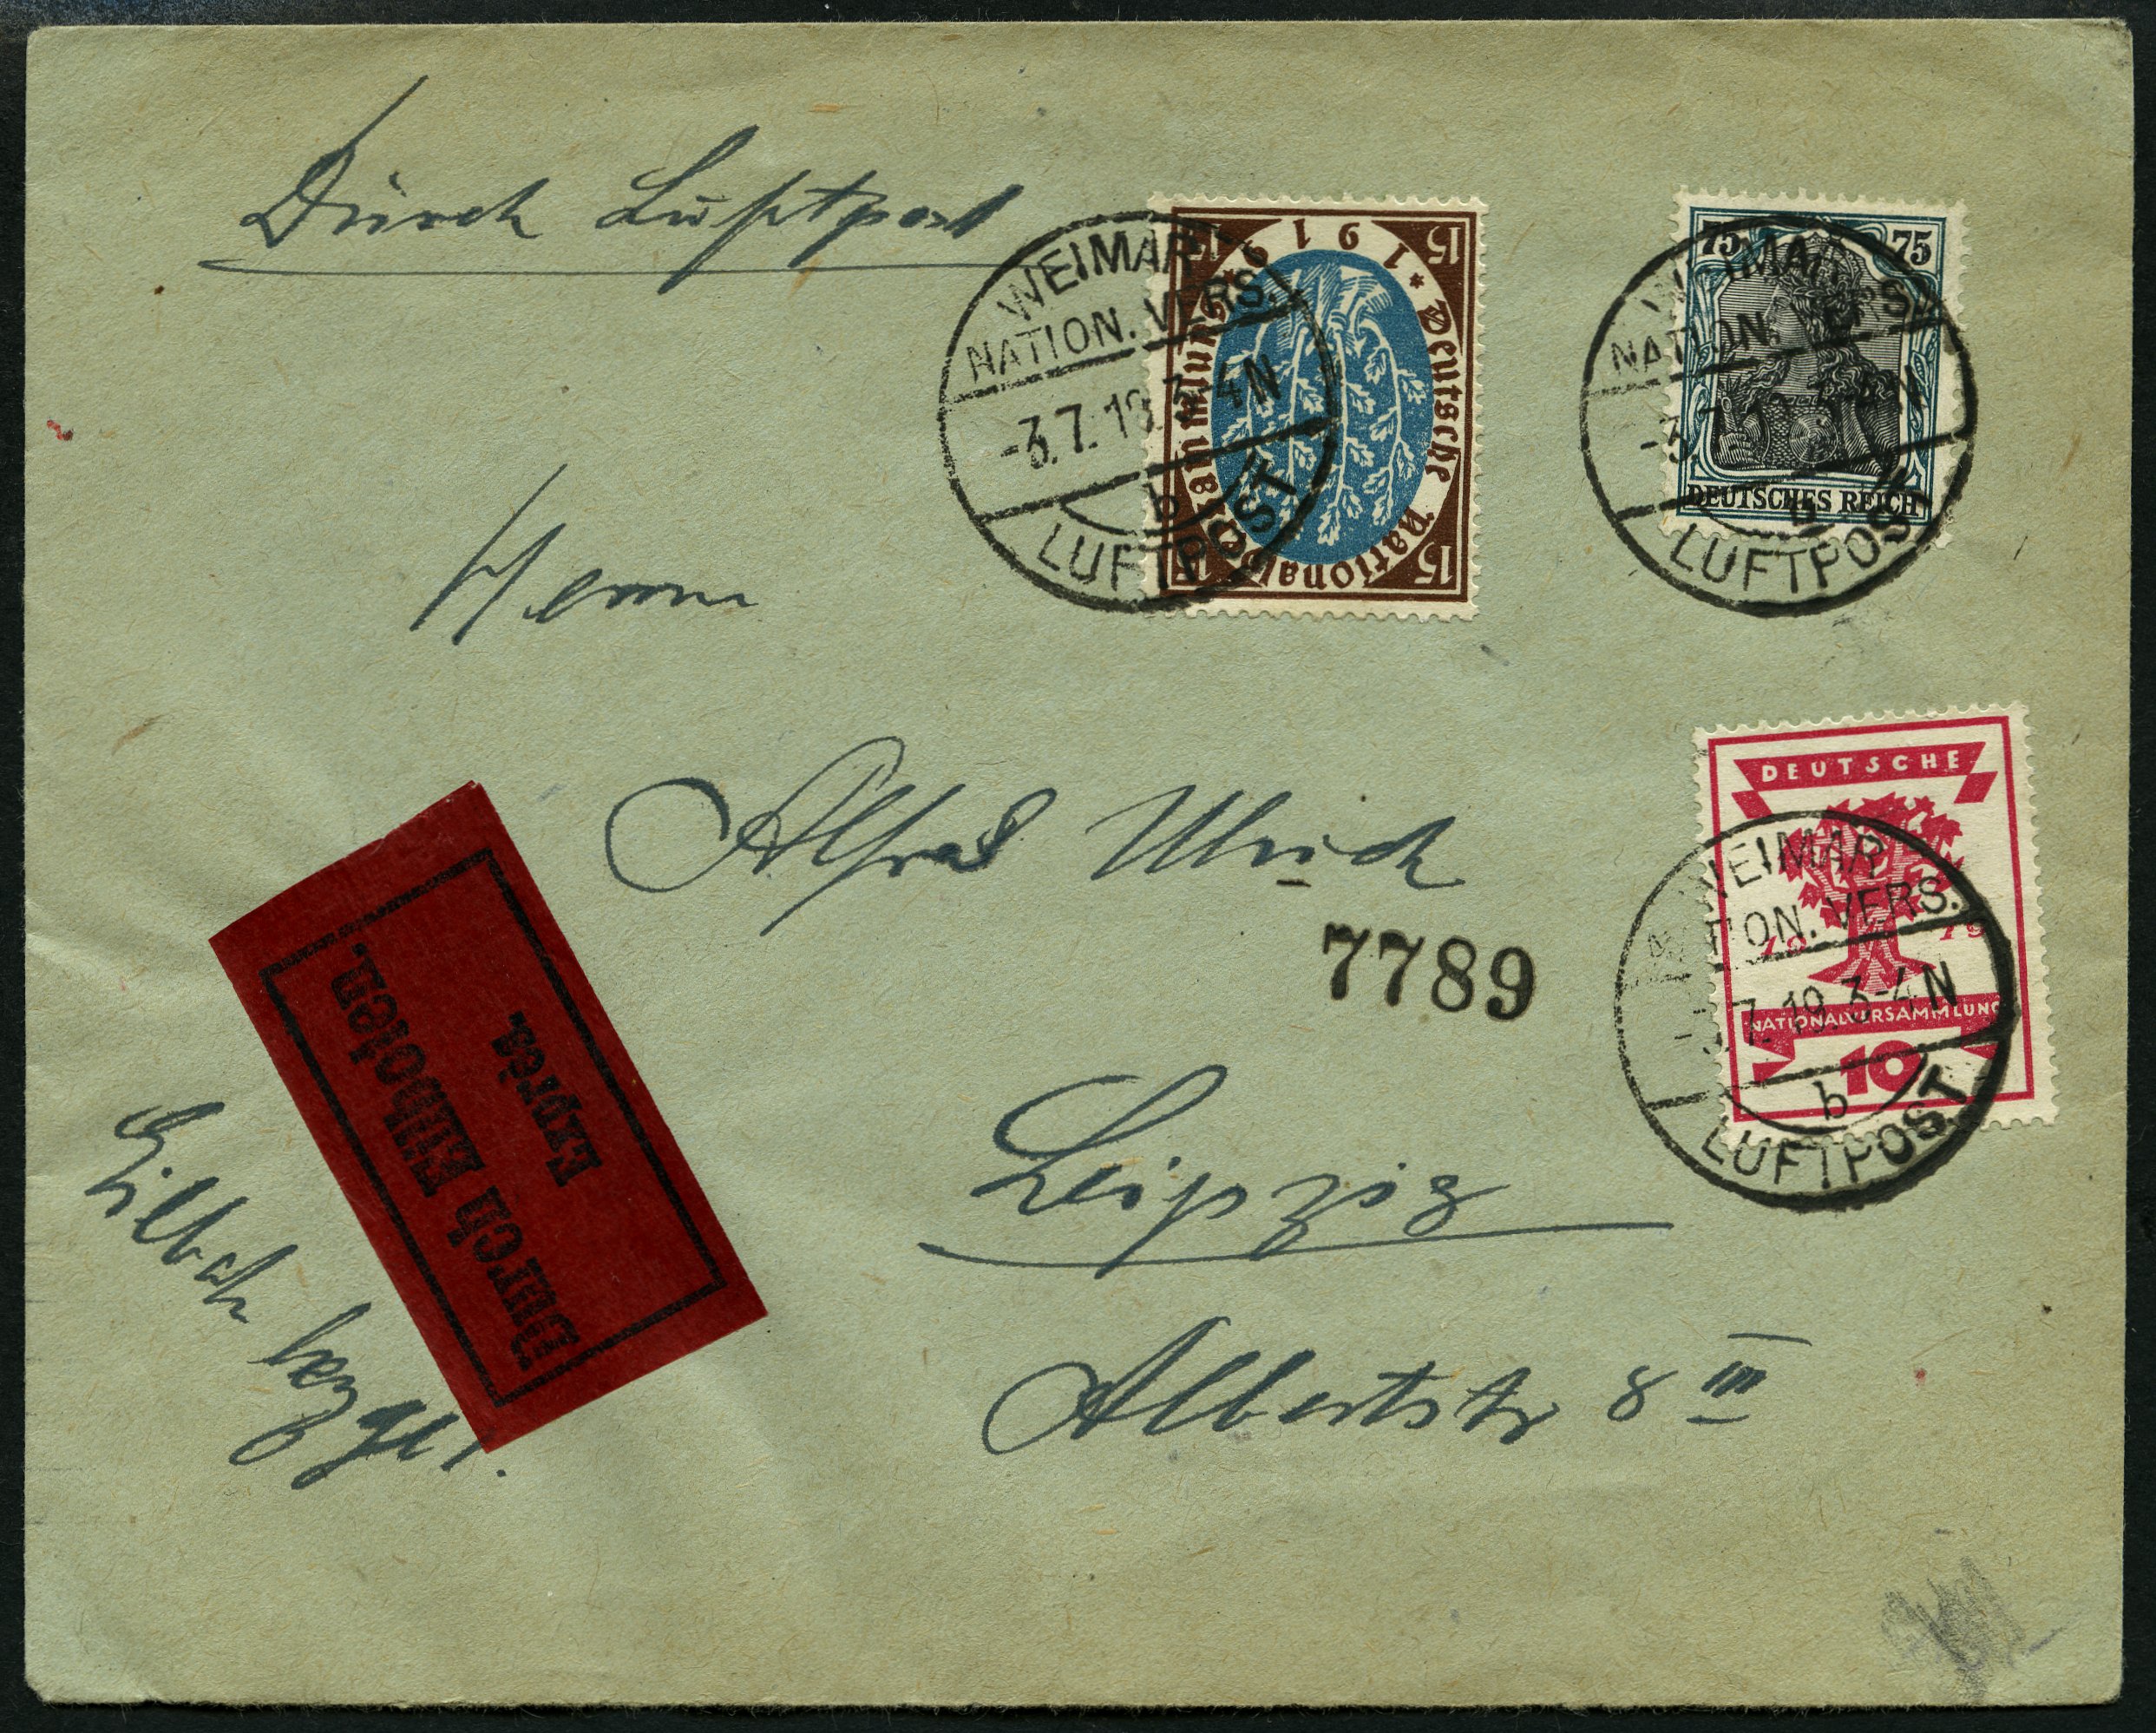 Durch Luftpost
WEIMAR
NATION. VERS.
-3.7.19. 3-4N
b
LUFTPOST
1919 * Deutsche Nationalversammlung *
15 15
15 15
75 75
DEUTSCHES REICH
WEIMAR
NATION. VERS.
-3.7.19. 3-4N
b
LUFTPOST
Herrn
Alfred Ulrich
7789
DEUTSCHE
19 19
NATIONALVERSAMMLUNG
10
WEIMAR
NATION. VERS.
-3.7.19. 3-4N
b
LUFTPOST
Durch Eilboten.
Exprès.
Leipzig
Albertstr 8 III